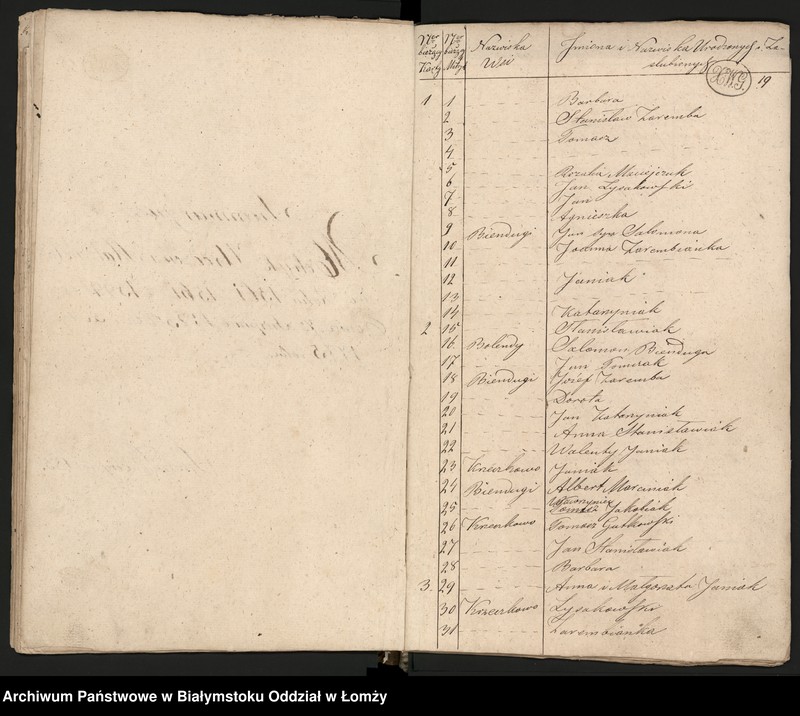 Nro bieżący Karty Nro bieżący Metryk Nazwiska Wsi Imiona i Nazwiska Urodzonych i Zaslubionych
19
1 1 Barbara
2 Stanisław Zaremba
3 Tomasz
4
5 Rozalia Maciejczuk
6 Jan Lysakowski
7 Jan
8 Agnieszka
9 Biendugi Jan syn Salomona
10 Joanna Zarembianka
11
12 Janiak
13
14 Katarzyniak
2 15 Stanisławiak
16 Bolendy Salomon Bienduga
17 Jan Tomczak
18 Biendugi Józef Zaremba
19 Dorota
20 Jan Katarzyniak
21 Anna Stanisławiak
22 Walenty Janiak
23 Krzeczkowo Janiak
24 Biendugi Albert Marciniak
25 Jakobiak
26 Krzeczkowo Tomasz Gutkowski
27 Jan Stanisławiak
28 Barbara
3 29 Anna i Małgorzata Janiak
30 Krzeczkowo Lysakowski
31 Zarembianka
Archiwum Państwowe w Białymstoku Oddział w Łomży